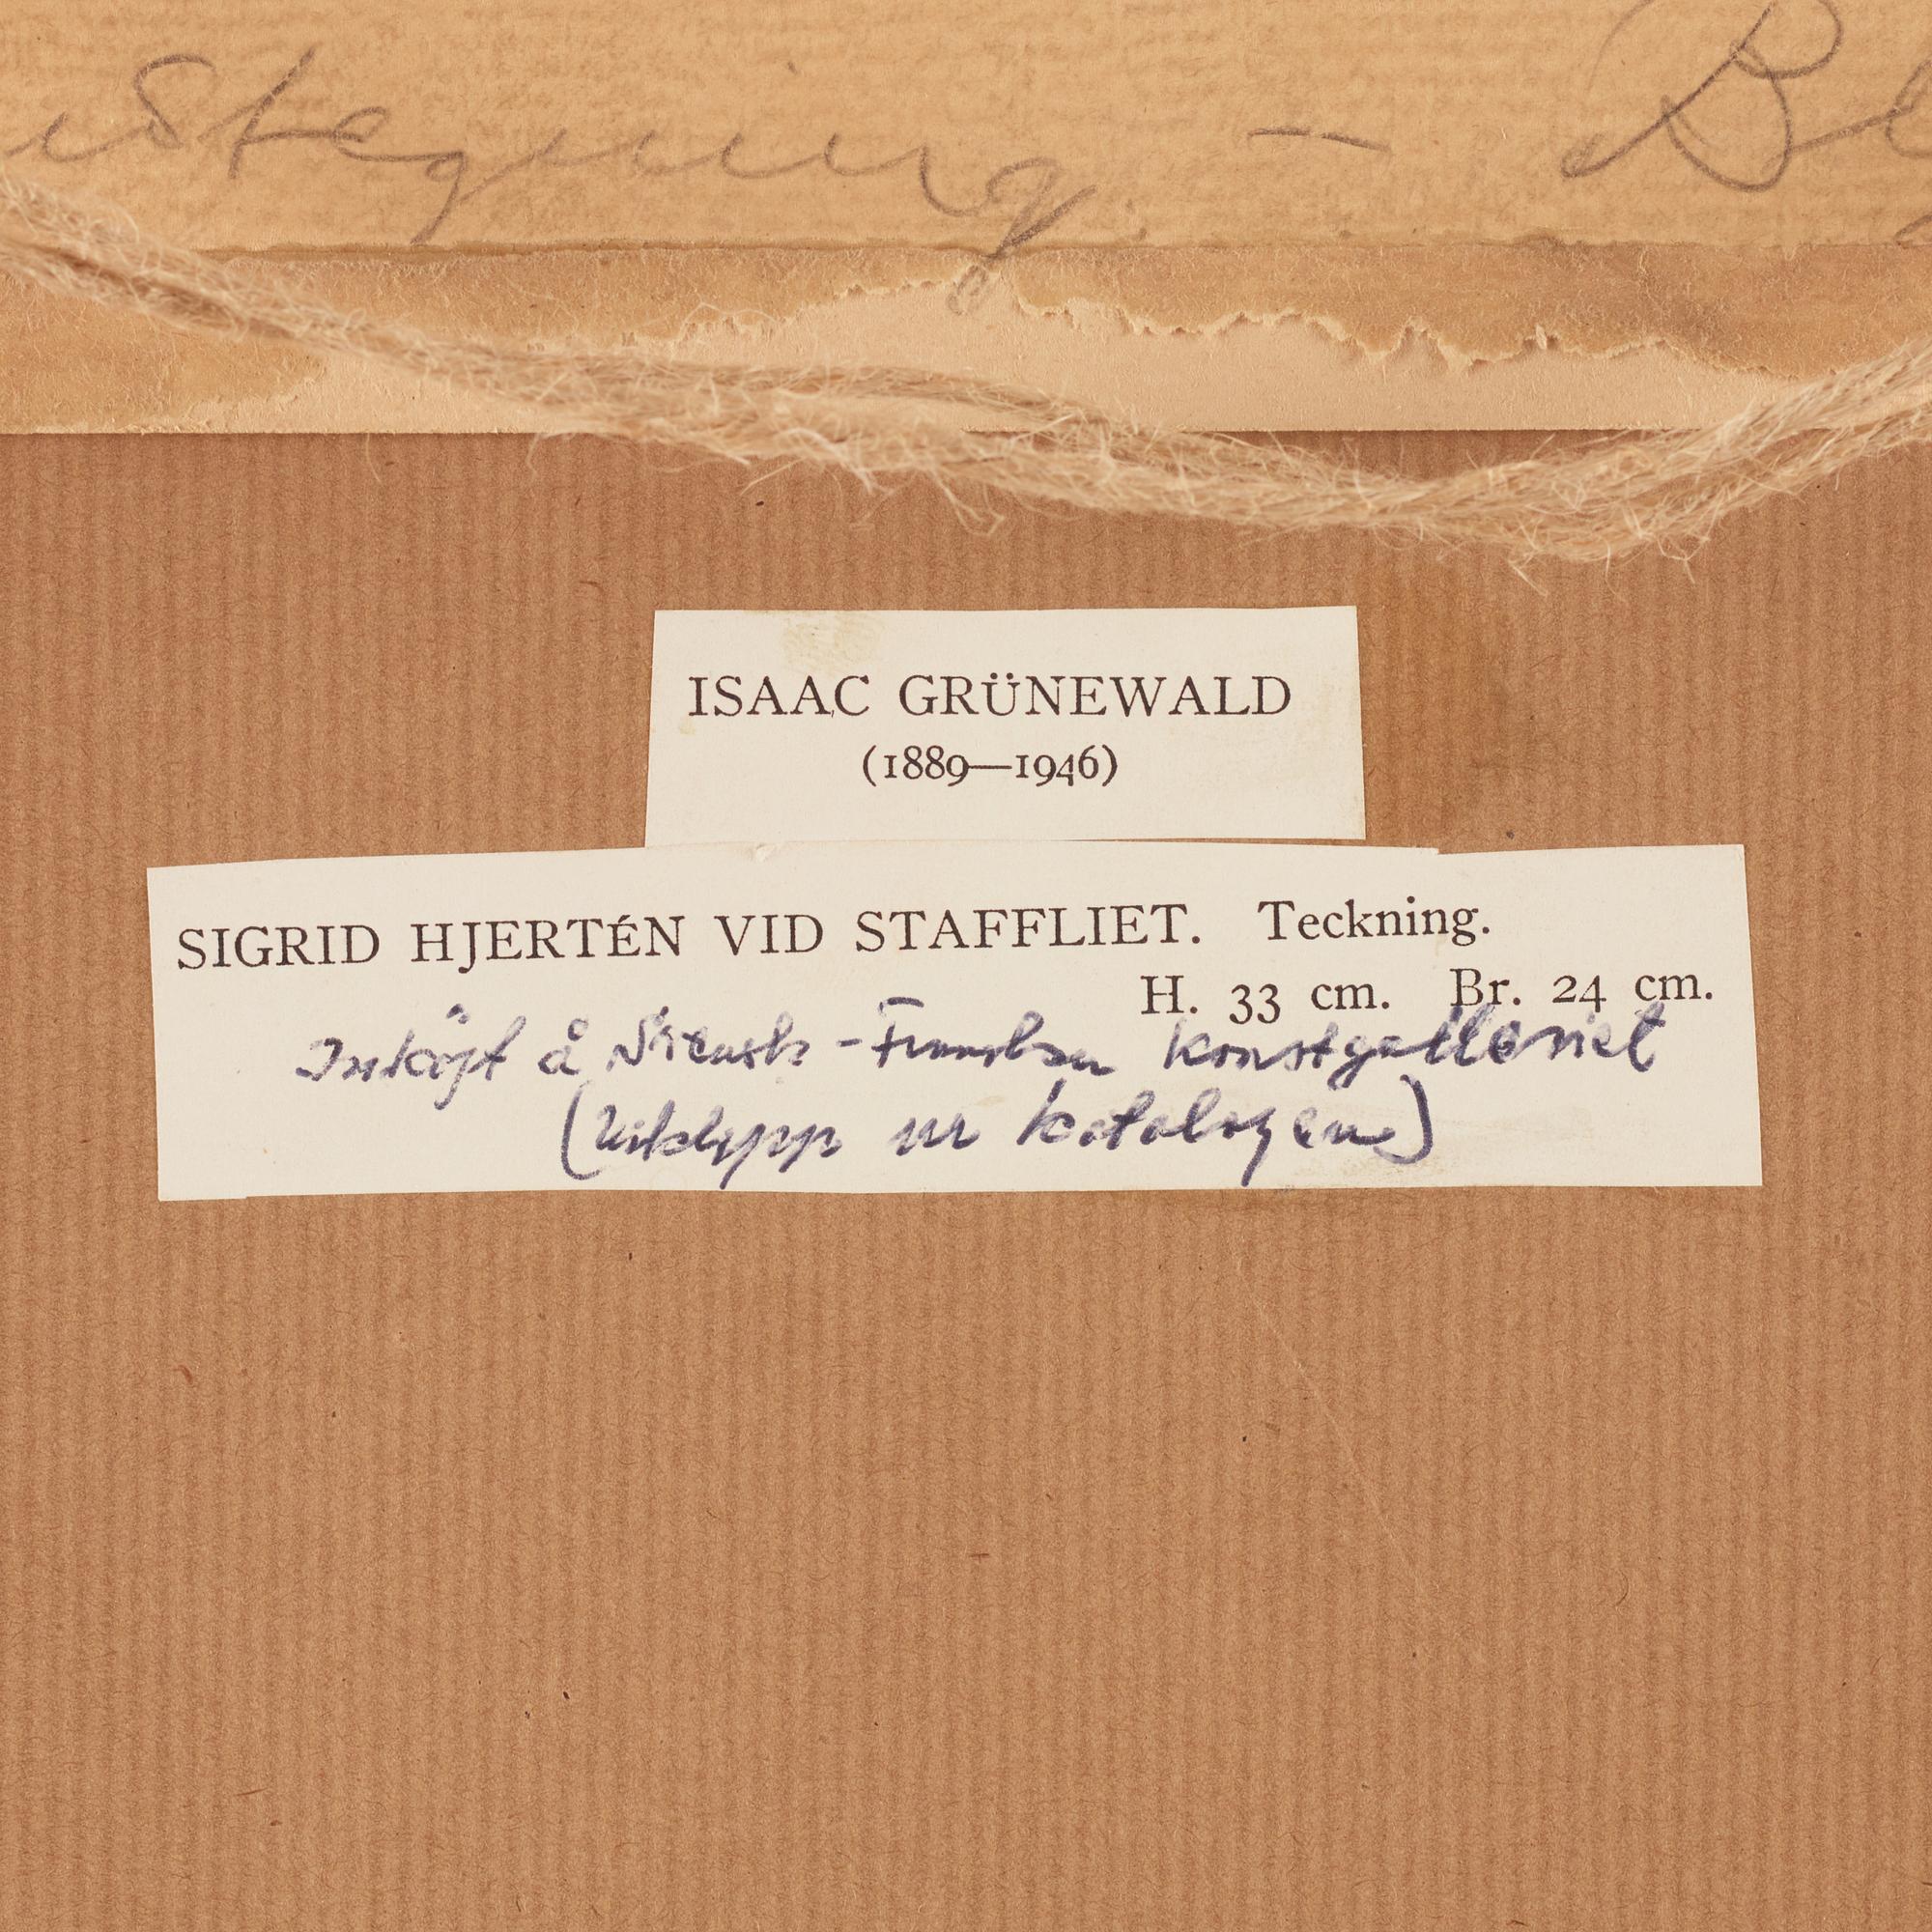 ustegning — Bl
ISAAC GRÜNEWALD
(1889—1946)
SIGRID HJERTÉN VID STAFFLIET. Teckning.
H. 33 cm. Br. 24 cm.
Inköpt å Svensk-Franska Konstgalleriet
(Urklipp ur katalogen)